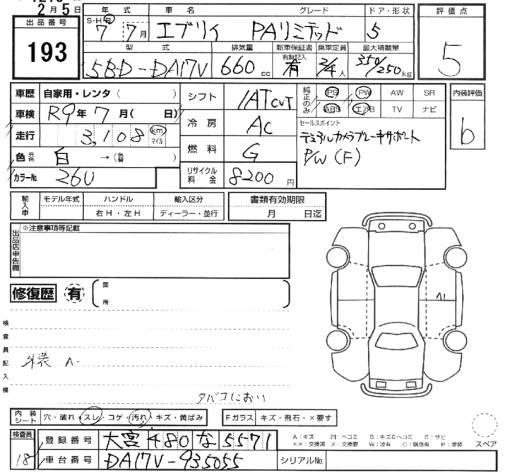 2月5日
出品番号
193
年 式
車 名
グレード
ドア・形状
S・H・R
7 年 7月
エブリイ PAリミテッド 5
型 式
排気量
新車保証書
有無記入
乗車定員
最大積載量
5BD-DA17V 660 cc 有 2/4人 350/250 kg
評価点
5
車歴 自家用・レンタ( )
車検 R9年 7月( 日)
走行 3,108 km マイル
色 白 →( )
カラーNo. 26U
シフト IAT CVT
冷房 AC
燃料 G
リサイクル料金 8200円
純正のみ
PS PW AW SR
ABS エアB TV ナビ
セールスポイント
デュアルカメラブレーキサポート
P/W (F)
内装評価
b
輸入車
モデル年式
ハンドル
右H・左H
輸入区分
ディーラー・並行
書類有効期限
月 日迄
出品店申告欄
※注意事項等記載
修復歴 有
箇所
検査員記入欄
内装 A.
タバコにおい
A1
内装シート
穴・破れ・スレ・コゲ・汚れ・キズ・黄ばみ
Fガラス キズ・飛石・×要す
スペア
検査員
18
登録番号 大宮 480 な 5571
車台番号 DA17V-935055
シリアルNo.